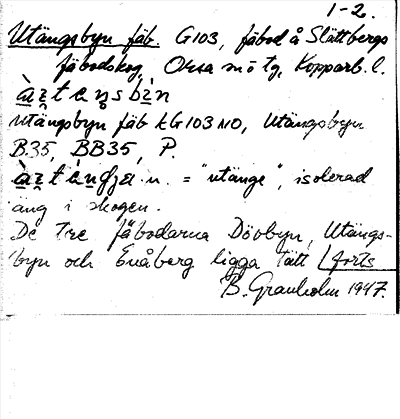 1-2.
Utängsbyn fäb. G103, fäbod å Slättbergs
fäbodskog, Orsa sn o tg, Kopparb. l.
Utängsbyn fäb kG103 NO, Utängsbyn
B.35, BB35, P.
n. = "utänge", isolerad
äng i skogen.
De tre fäbodarna Dövbyn, Utängs-
byn och Enåberg ligga tätt forts
B. Granholm 1947.